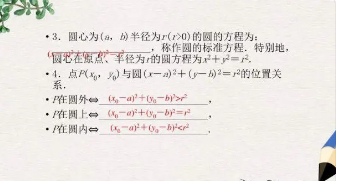 • 3．圆心为(a，b)半径为r(r>0)的圆的方程为：
(x－a)²＋(y－b)²＝r²，称作圆的标准方程．特别地，
圆心在原点、半径为r的圆方程为x²＋y²＝r².
• 4．点P(x₀，y₀)与圆(x－a)²＋(y－b)²＝r²的位置关
系．
• P在圆外⇔ (x₀－a)²＋(y₀－b)²>r²，
• P在圆上⇔ (x₀－a)²＋(y₀－b)²＝r²，
• P在圆内⇔ (x₀－a)²＋(y₀－b)²<r².